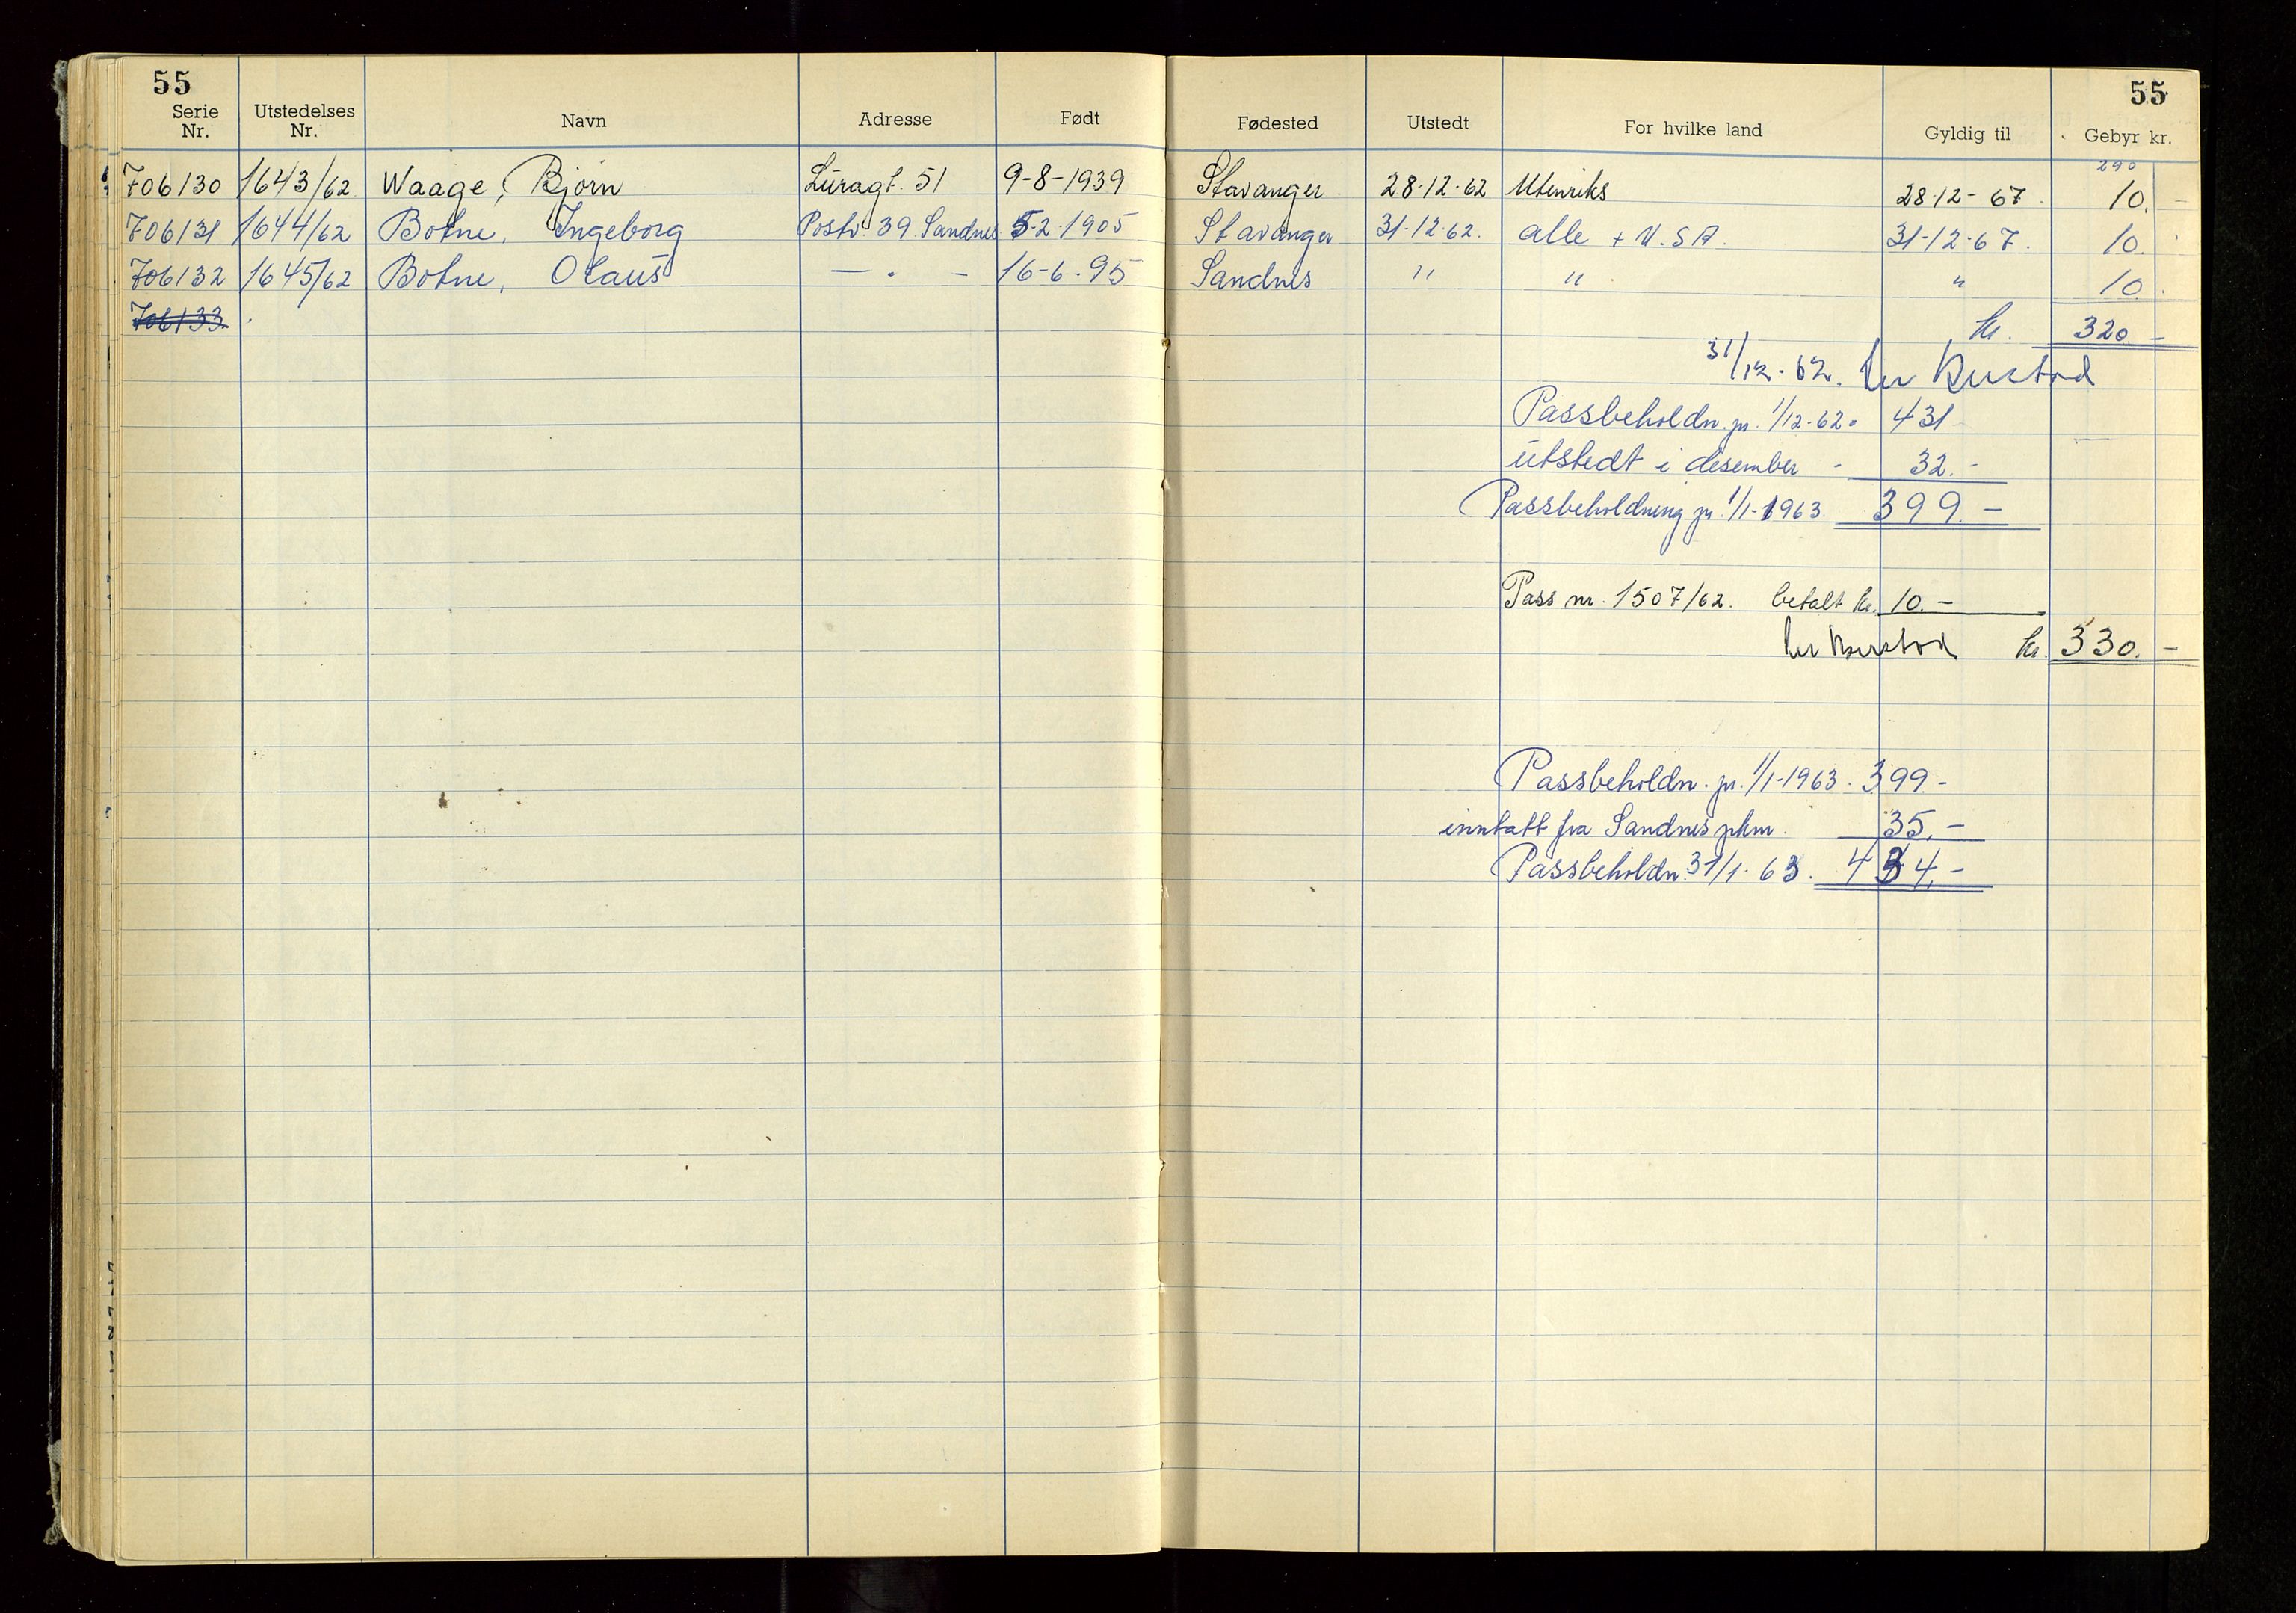 55 55
Serie Nr. Utstedelses Nr. Navn Adresse Født Fødested Utstedt For hvilke land Gyldig til Gebyr kr.
290
706130 1643/62 Waage, Bjørn Luragt. 51 9-8-1939 Stavanger 28-12-62 Utenriks 28-12-67. 10.-
706131 1644/62 Botne, Ingeborg Postb. 39 Sandnes 5-2-1905 Stavanger 31-12-62. alle + U.S.A. 31-12-67. 10.
706132 1645/62 Botne, Olaus — " — 16-6-95 Sandnes " " " 10.
706133 kr. 320.-
31/12-62.
Passbeholdn. pr. 1/12-62. 431
utstedt i desember - 32.-
Passbeholdning pr. 1/1-1963 399.-
Pass nr. 1507/62. betalt kr. 10.-
kr. 330.-
Passbeholdn. pr. 1/1-1963. 399.-
inntatt fra Sandnes pkm. 35,-
Passbeholdn. 31/1-63. 434,-